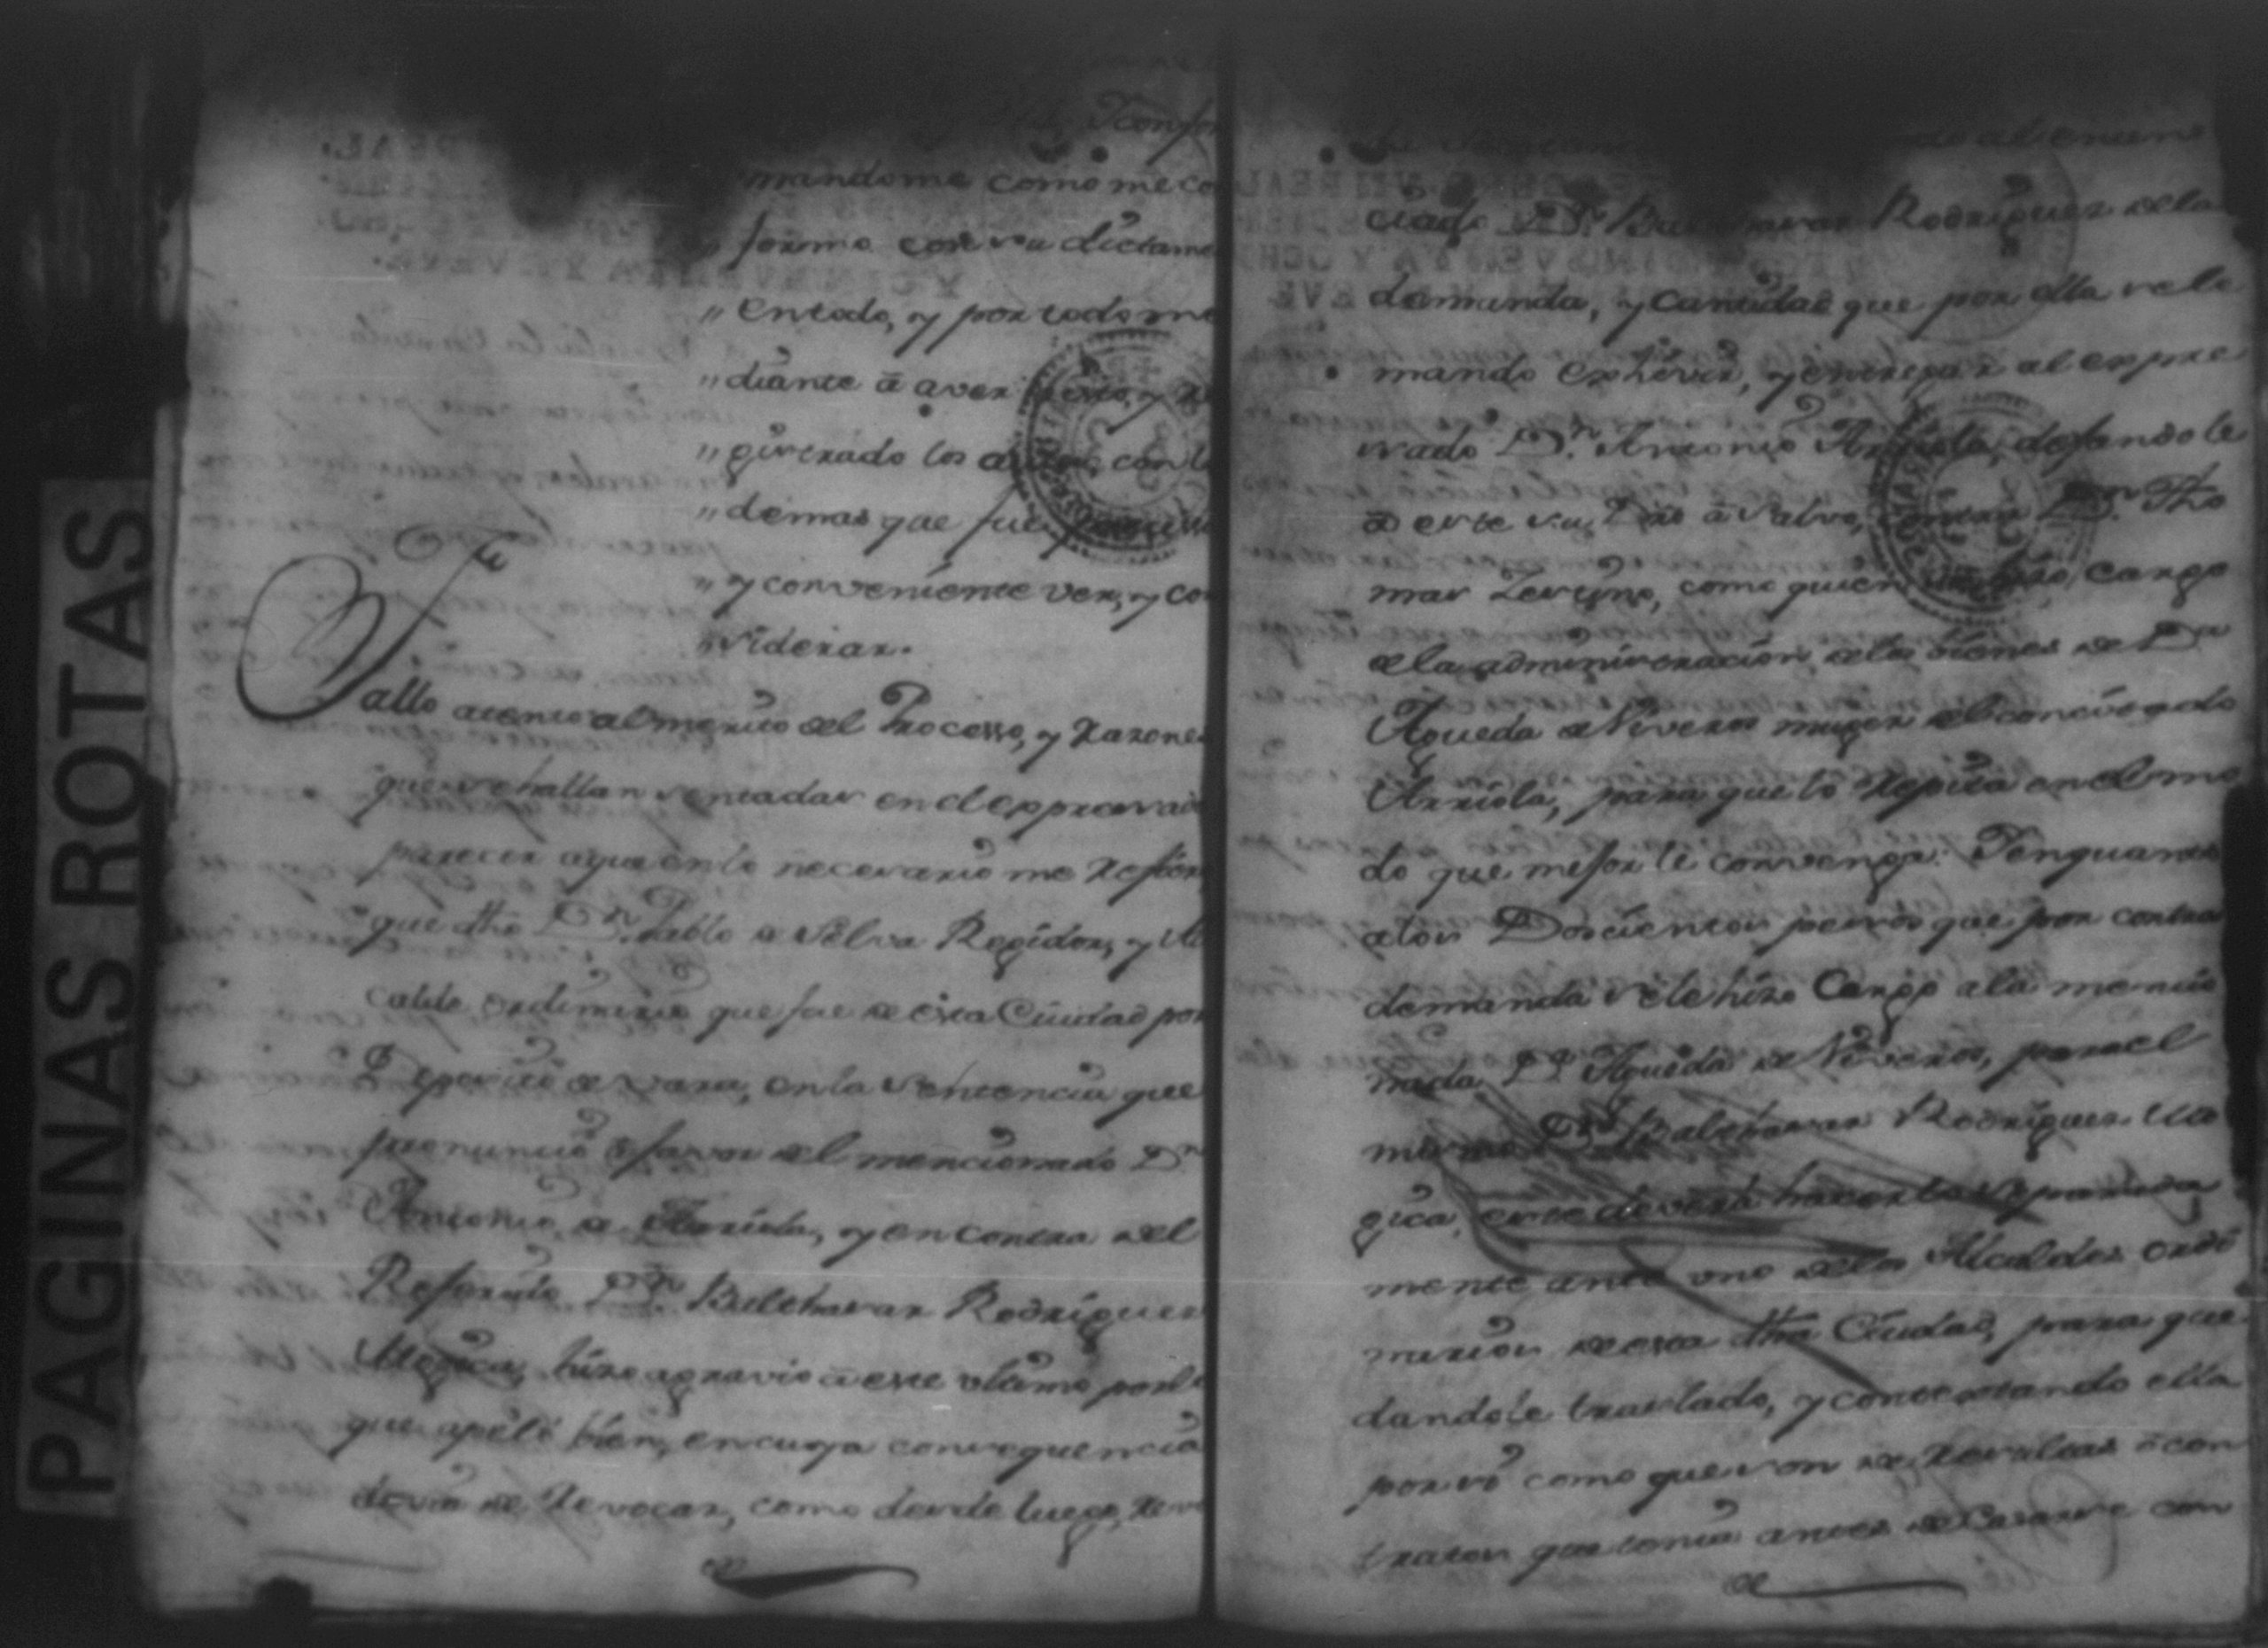 PAGINAS ROTAS
Y confor
mandome como me co
" formo con su dictame
" en todo, y por todo me
" diante â aver visto, y re
" gistrado los autos, con lo
" demas que fue
" y conveniente ver, y con
" siderar.
Fallo atento al merito del Processo, y razones
que se hallan sentadas en el expressado
parecer aque en lo necesario me refiero
que dho Dn. Pablo de Selva Regidor, y Al
calde ordinario que fue de esta Ciudad por
Deposito de vara, en la sentencia que
pronunciò â favor del mencionado Dn
Antonio de Arriola, y en contra del
Referido Dn. Balthasar Rodriguez
Mogica, hizo agravio â este ultimo por lo
que apelò bien, en cuya consequencia
devia de Revocar, como desde luego, revo
al enunc
ciado Dn. Balthasar Rodriguez de la
demanda, y cantidad que por ella se le
mandò exhivir, y entregar al expre
sado Dn. Antonio Arriola, dejandole
â este su Dro â salvo, contra Dn. Tho
mas Zerizno, como quien se hizo cargo
de la administracion de los bienes de Da
Agueda de Niveros muger del concevido
Arriola, para que lo repita en el mo
do que mejor le convenga: Y en quanto
â los Doscientos pesos que por contra
demanda se le hizo Cargo â la mencio
nada Da Agueda de Niveros, por el
mismo Dn Balthasar Rodriguez Mo
gica, este deverá hacerla separada
mente ante uno de los Alcaldes ordi
narios de esta dha Ciudad, para que
dandole traslado, y contestando ella
por sì como que son de resultas â con
tratos que tenia antes de Casarse con